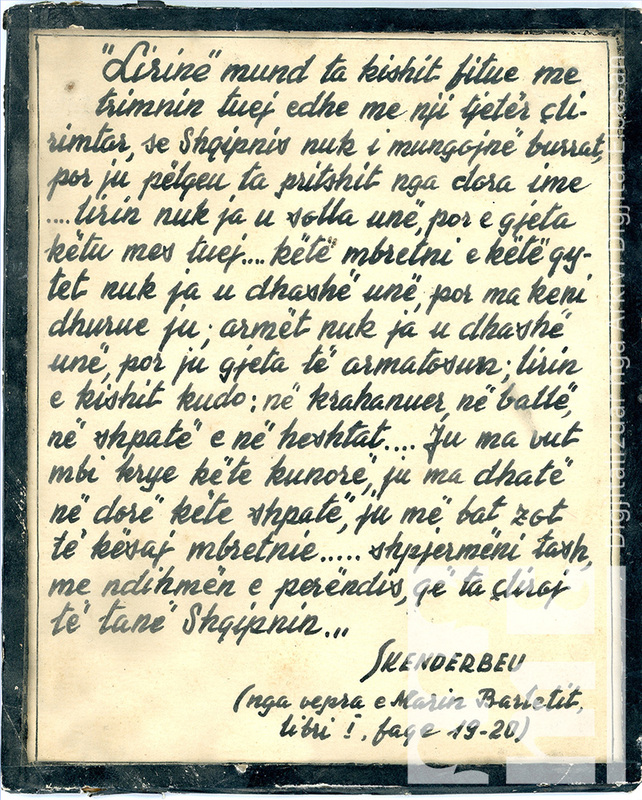 "Lirinë mund ta kishit fitue me
trimnin tuej edhe me nji tjetër çli-
rimtar, se Shqipnis nuk i mungojnë burrat,
por ju pëlqeu ta pritshit nga dora ime
.... lirin nuk ja u solla unë, por e gjeta
këtu mes tuej.... këtë mbretni e këtë qy-
tet nuk ja u dhashë unë, por ma keni
dhurue ju; armët nuk ja u dhashë
unë, por ju gjeta të armatosun; lirin
e kishit kudo: në krahanuer, në ballë,
në shpatë e në heshtat.... Ju ma vut
mbi krye këte kunorë, ju ma dhatë
në dorë këte shpatë, ju më bat zot
të kësaj mbretnie..... shpjermëni tash,
me ndihmën e perëndis, që ta çliroj
të tanë Shqipnin...
SKENDERBEU
(nga vepra e Marin Barletit,
libri I, faqe 19-20)
Digjitalizuar nga Arkiv Digjital Elbasan